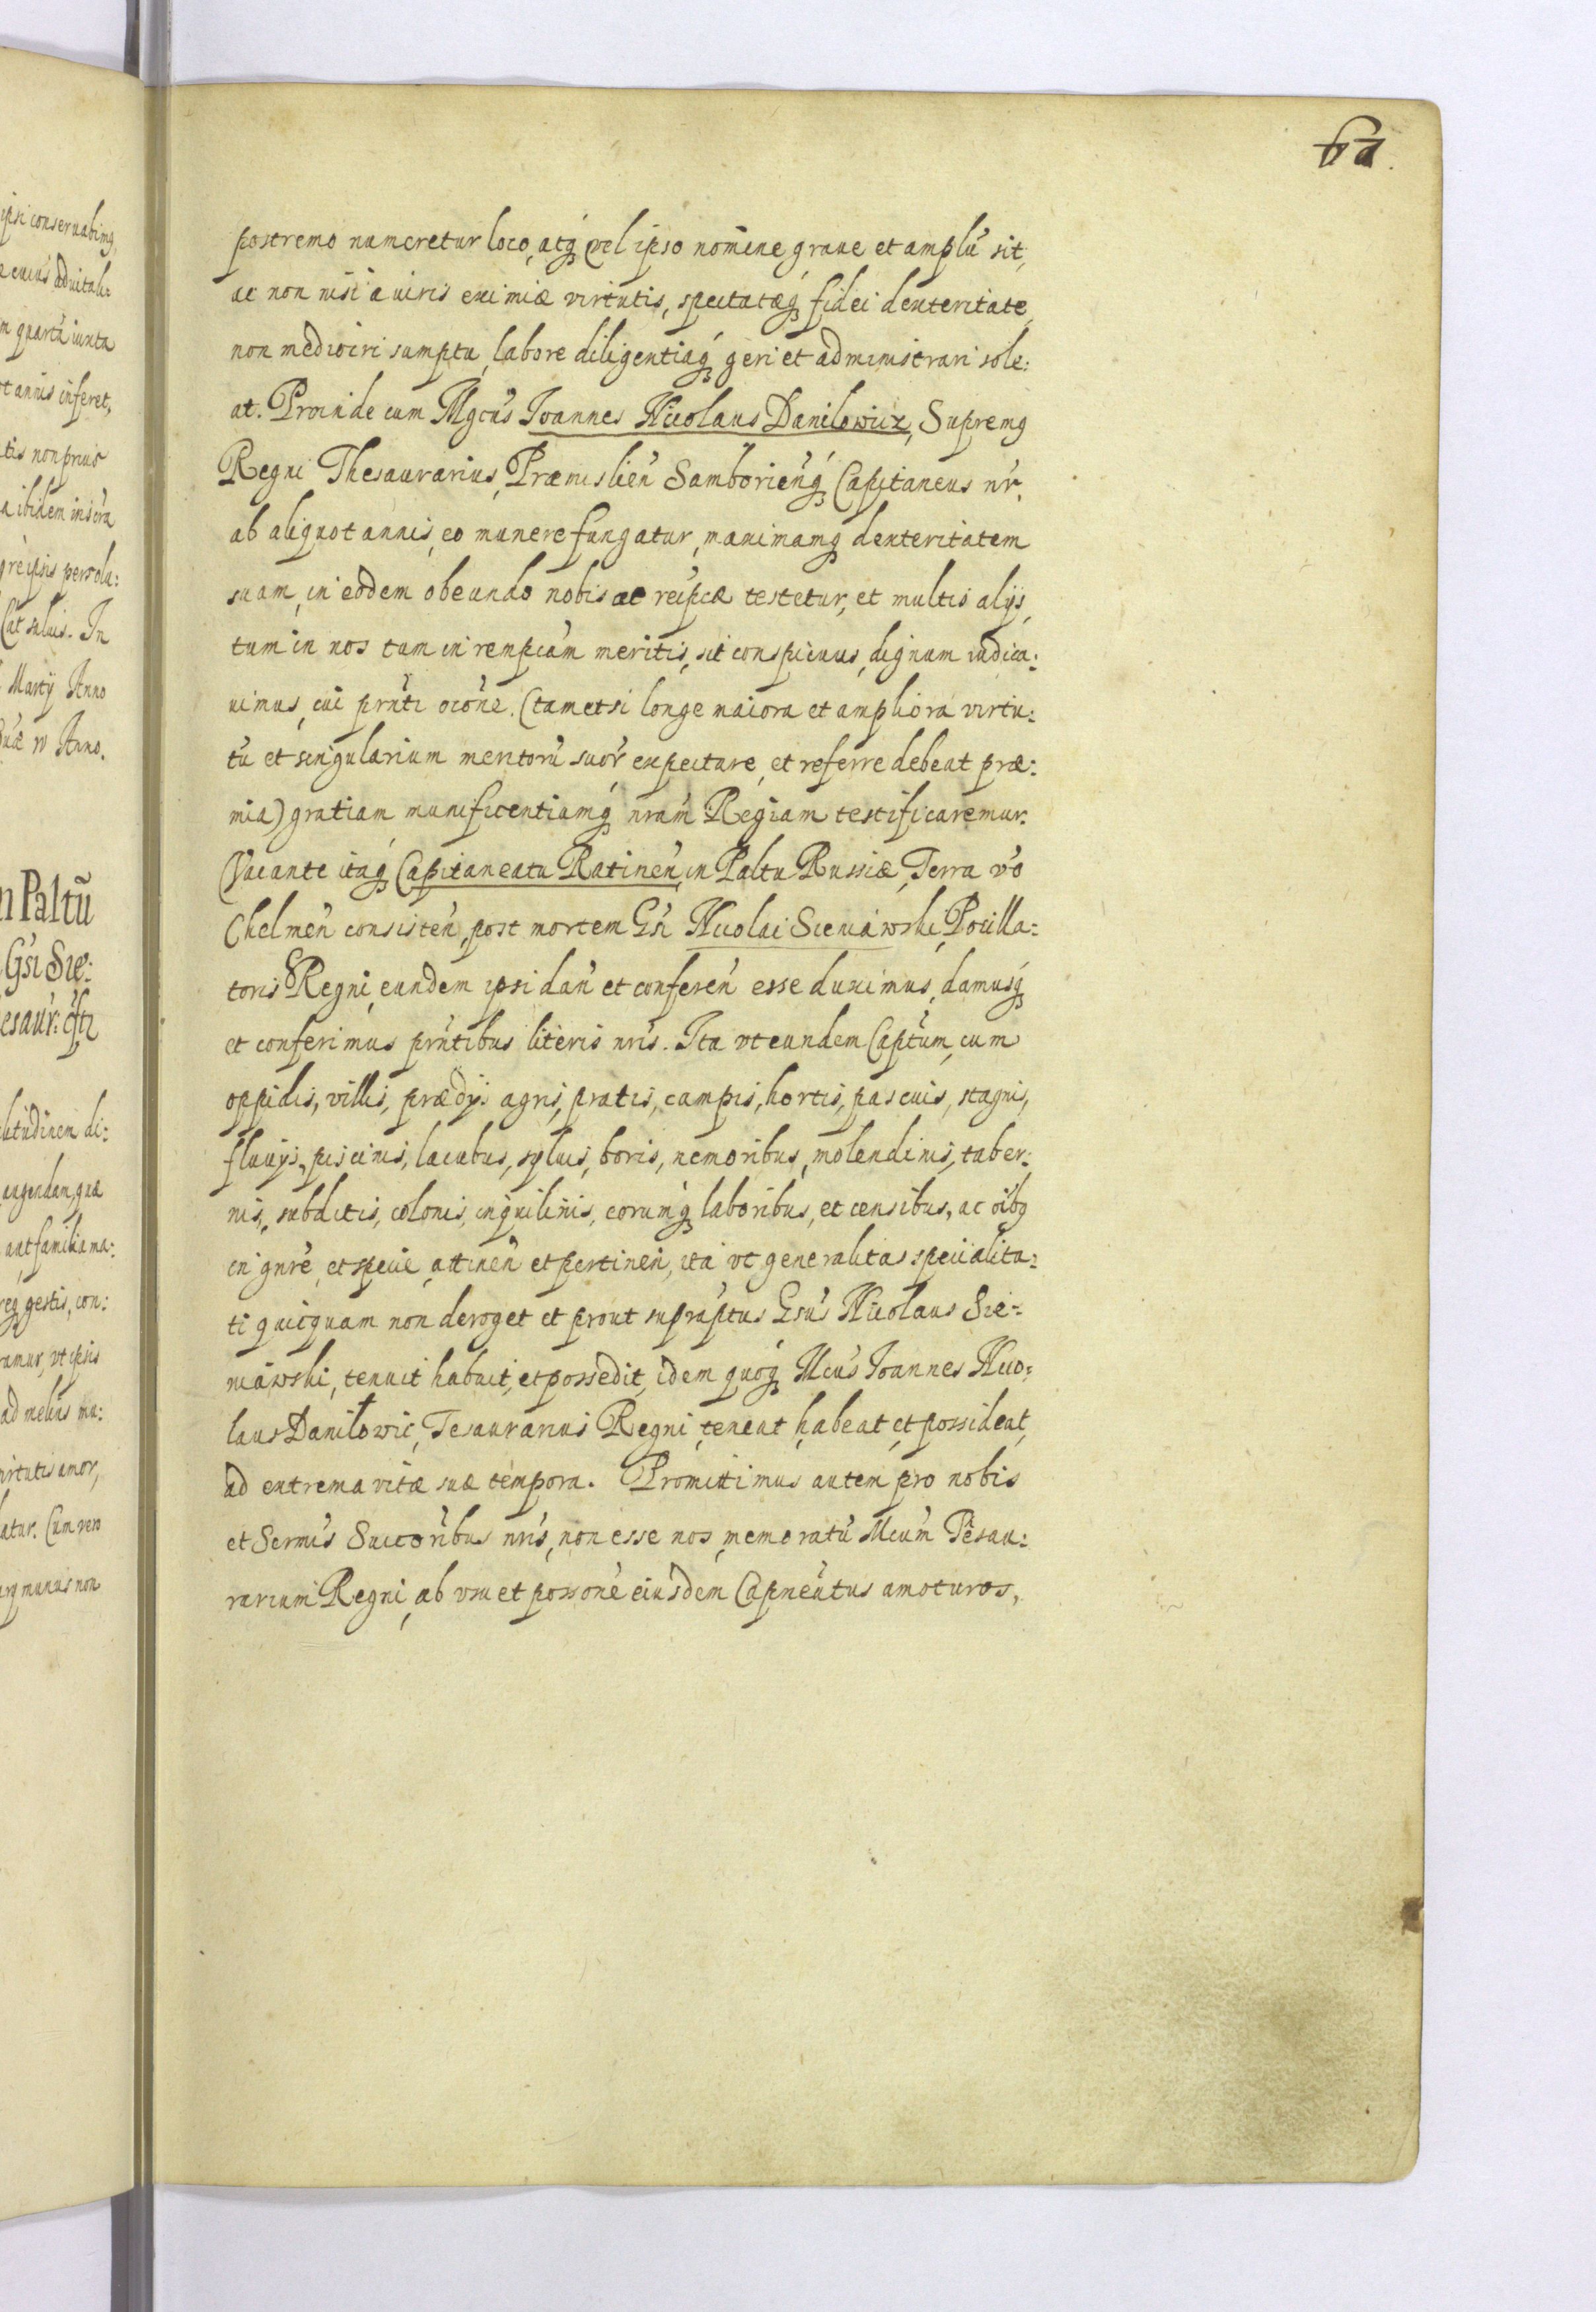 61.
postremo numeretur loco, atq́ȝ vel ipso nomine graue et amplū sit,
ac non nisi a uiris eximiæ virtutis, spectatæq́ȝ fidei dexteritate,
non mediocri sumptu, labore diligentiaq́ȝ geri et administrari sole:
at. Proinde cum Mgcus Ioannes Nicolaus Danilowicz, Supremꝰ
Regni Thesaurarius, Præmislień Samborieńq́ȝ Capitaneus nr̄,
ab aliquot annis, eo munere fungatur, maximamq́ȝ dexteritatem
suam, in eodem obeundo nobis ac reipcæ testetur, et multis alijs,
tum in nos tum in rempcam meritis, sit conspicuus, dignum iudica:
uimus, cui prn̄ti oc̄one. (tametsi longe maiora et ampliora virtu:
tū et singularium meritorū suor̄ expectare, et referre debeat præ:
mia) gratiam munificentiamq́ȝ nram̄ Regiam testificaremur.
Vacante itaq́ȝ Capitaneatu Ratineń, in Paltu Russiæ, Terra vō
Chelmeń consisteń, post mortem Gsi Nicolai Sieniawski, Pocilla:
toris Regni, eundem ipsi dań et confereń esse duximus, damusq́ȝ
et conferimus prn̄tibus literis nris̄. Ita vt eundem Captūm, cum
oppidis, villis, prædijs agris, pratis, campis, hortis, pascuis, stagnis,
fluuijs, piscinis, lacubus, syluis, boris, nemoribus, molendinis, taber:
nis, subditis, colonis, inquilinis, eorumq́ȝ laboribus, et censibus, ac oib̄ꝰ
in gnrē, et specie, attineń et pertineń, ita vt generalitas specialita:
ti quicquam non deroget et prout supraptus Gsus Nicolaus Sie:
niawski, tenuit habuit, et possedit, idem quoq́ȝ Mcus Ioannes Nico:
laus Daniłowic, Tesaurarius Regni, teneat, habeat, et possideat,
ad extrema vitæ suæ tempora. Promittimus autem pro nobis
et Sermis̄ Succorībus nris̄, non esse nos, memoratū Mcum̄ Tesau:
rarium Regni, ab vsu et possonē eiusdem Capneātus amoturos,